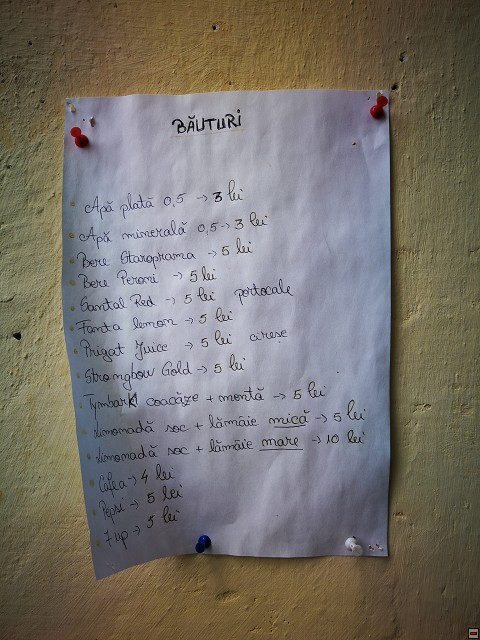 BĂUTURI
Apă plată 0,5 → 3 lei
Apă minerală 0,5 → 3 lei
Bere Staroprama → 5 lei
Bere Peroni → 5 lei
Santal Red → 5 lei portocale
Fanta lemon → 5 lei
Prigat Juice → 5 lei cirese
Strongbow Gold → 5 lei
Tymbark coacăze + mentă → 5 lei
Limonadă soc + lămâie mică → 5 lei
Limonadă soc + lămâie mare → 10 lei
Cafea → 4 lei
Pepsi → 5 lei
7 up → 5 lei